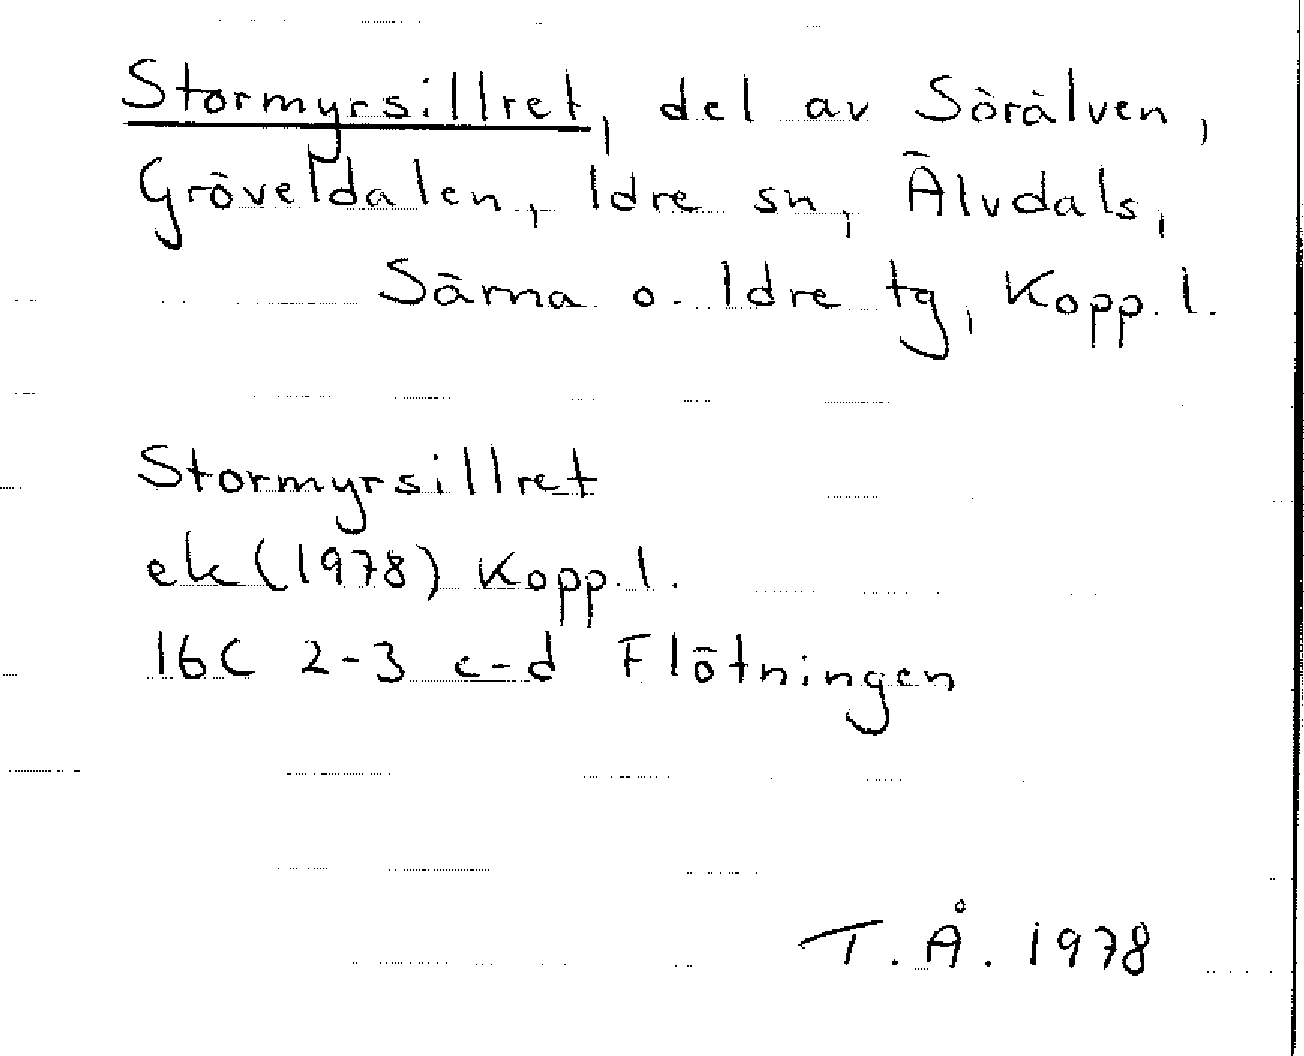 Stormyrsillret, del av Sörälven,
Gröveldalen, Idre sn, Älvdals,
Särna o. Idre tg, Kopp. l.
Stormyrsillret
ek (1978) Kopp. l.
16C 2-3 c-d Flötningen
T. Å. 1978